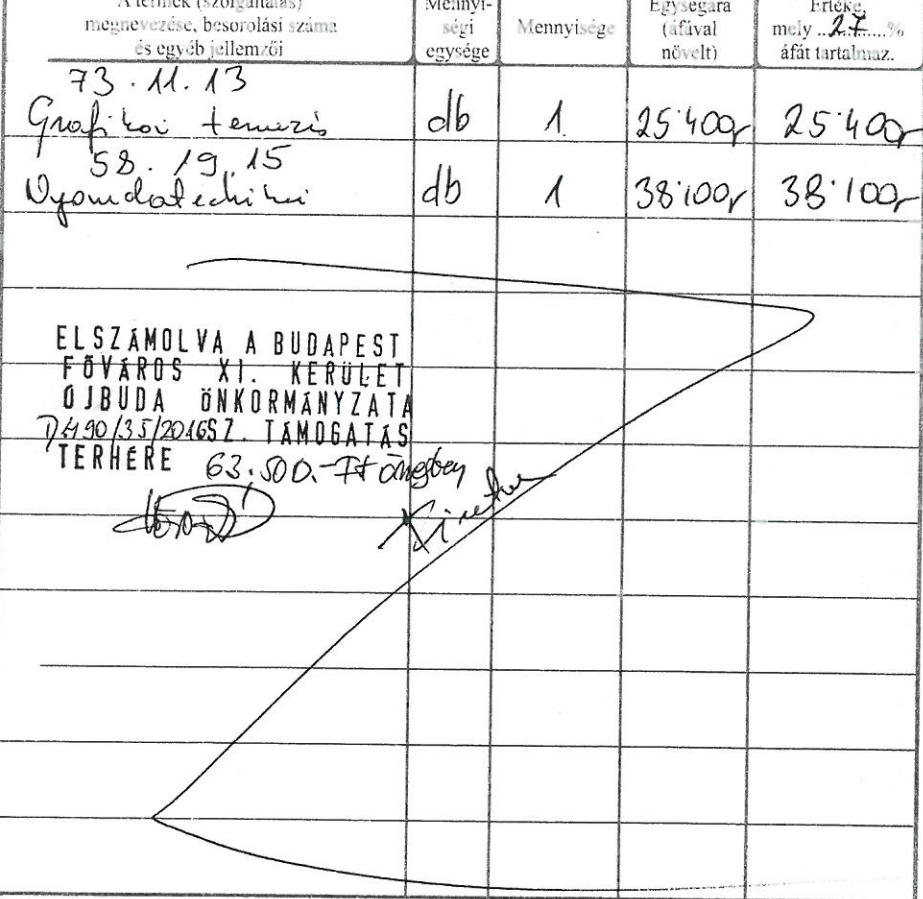 A termék (szolgáltatás)
megnevezése, besorolási száma
és egyéb jellemzői
Mennyi-
ségi
egysége
Mennyisége
Egységára
(áfával
növelt)
Értéke,
mely ..27.....%
áfát tartalmaz..
73.11.13
Grafikai tervezés db 1 25'400,- 25'400,-
58.19.15
Nyomdatechnikai db 1 38'100,- 38'100,-
ELSZÁMOLVA A BUDAPEST
FŐVÁROS XI. KERÜLET
ÚJBUDA ÖNKORMÁNYZATA
/35/2016SZ. TÁMOGATÁS
TERHÉRE 63.500.-Ft összegben